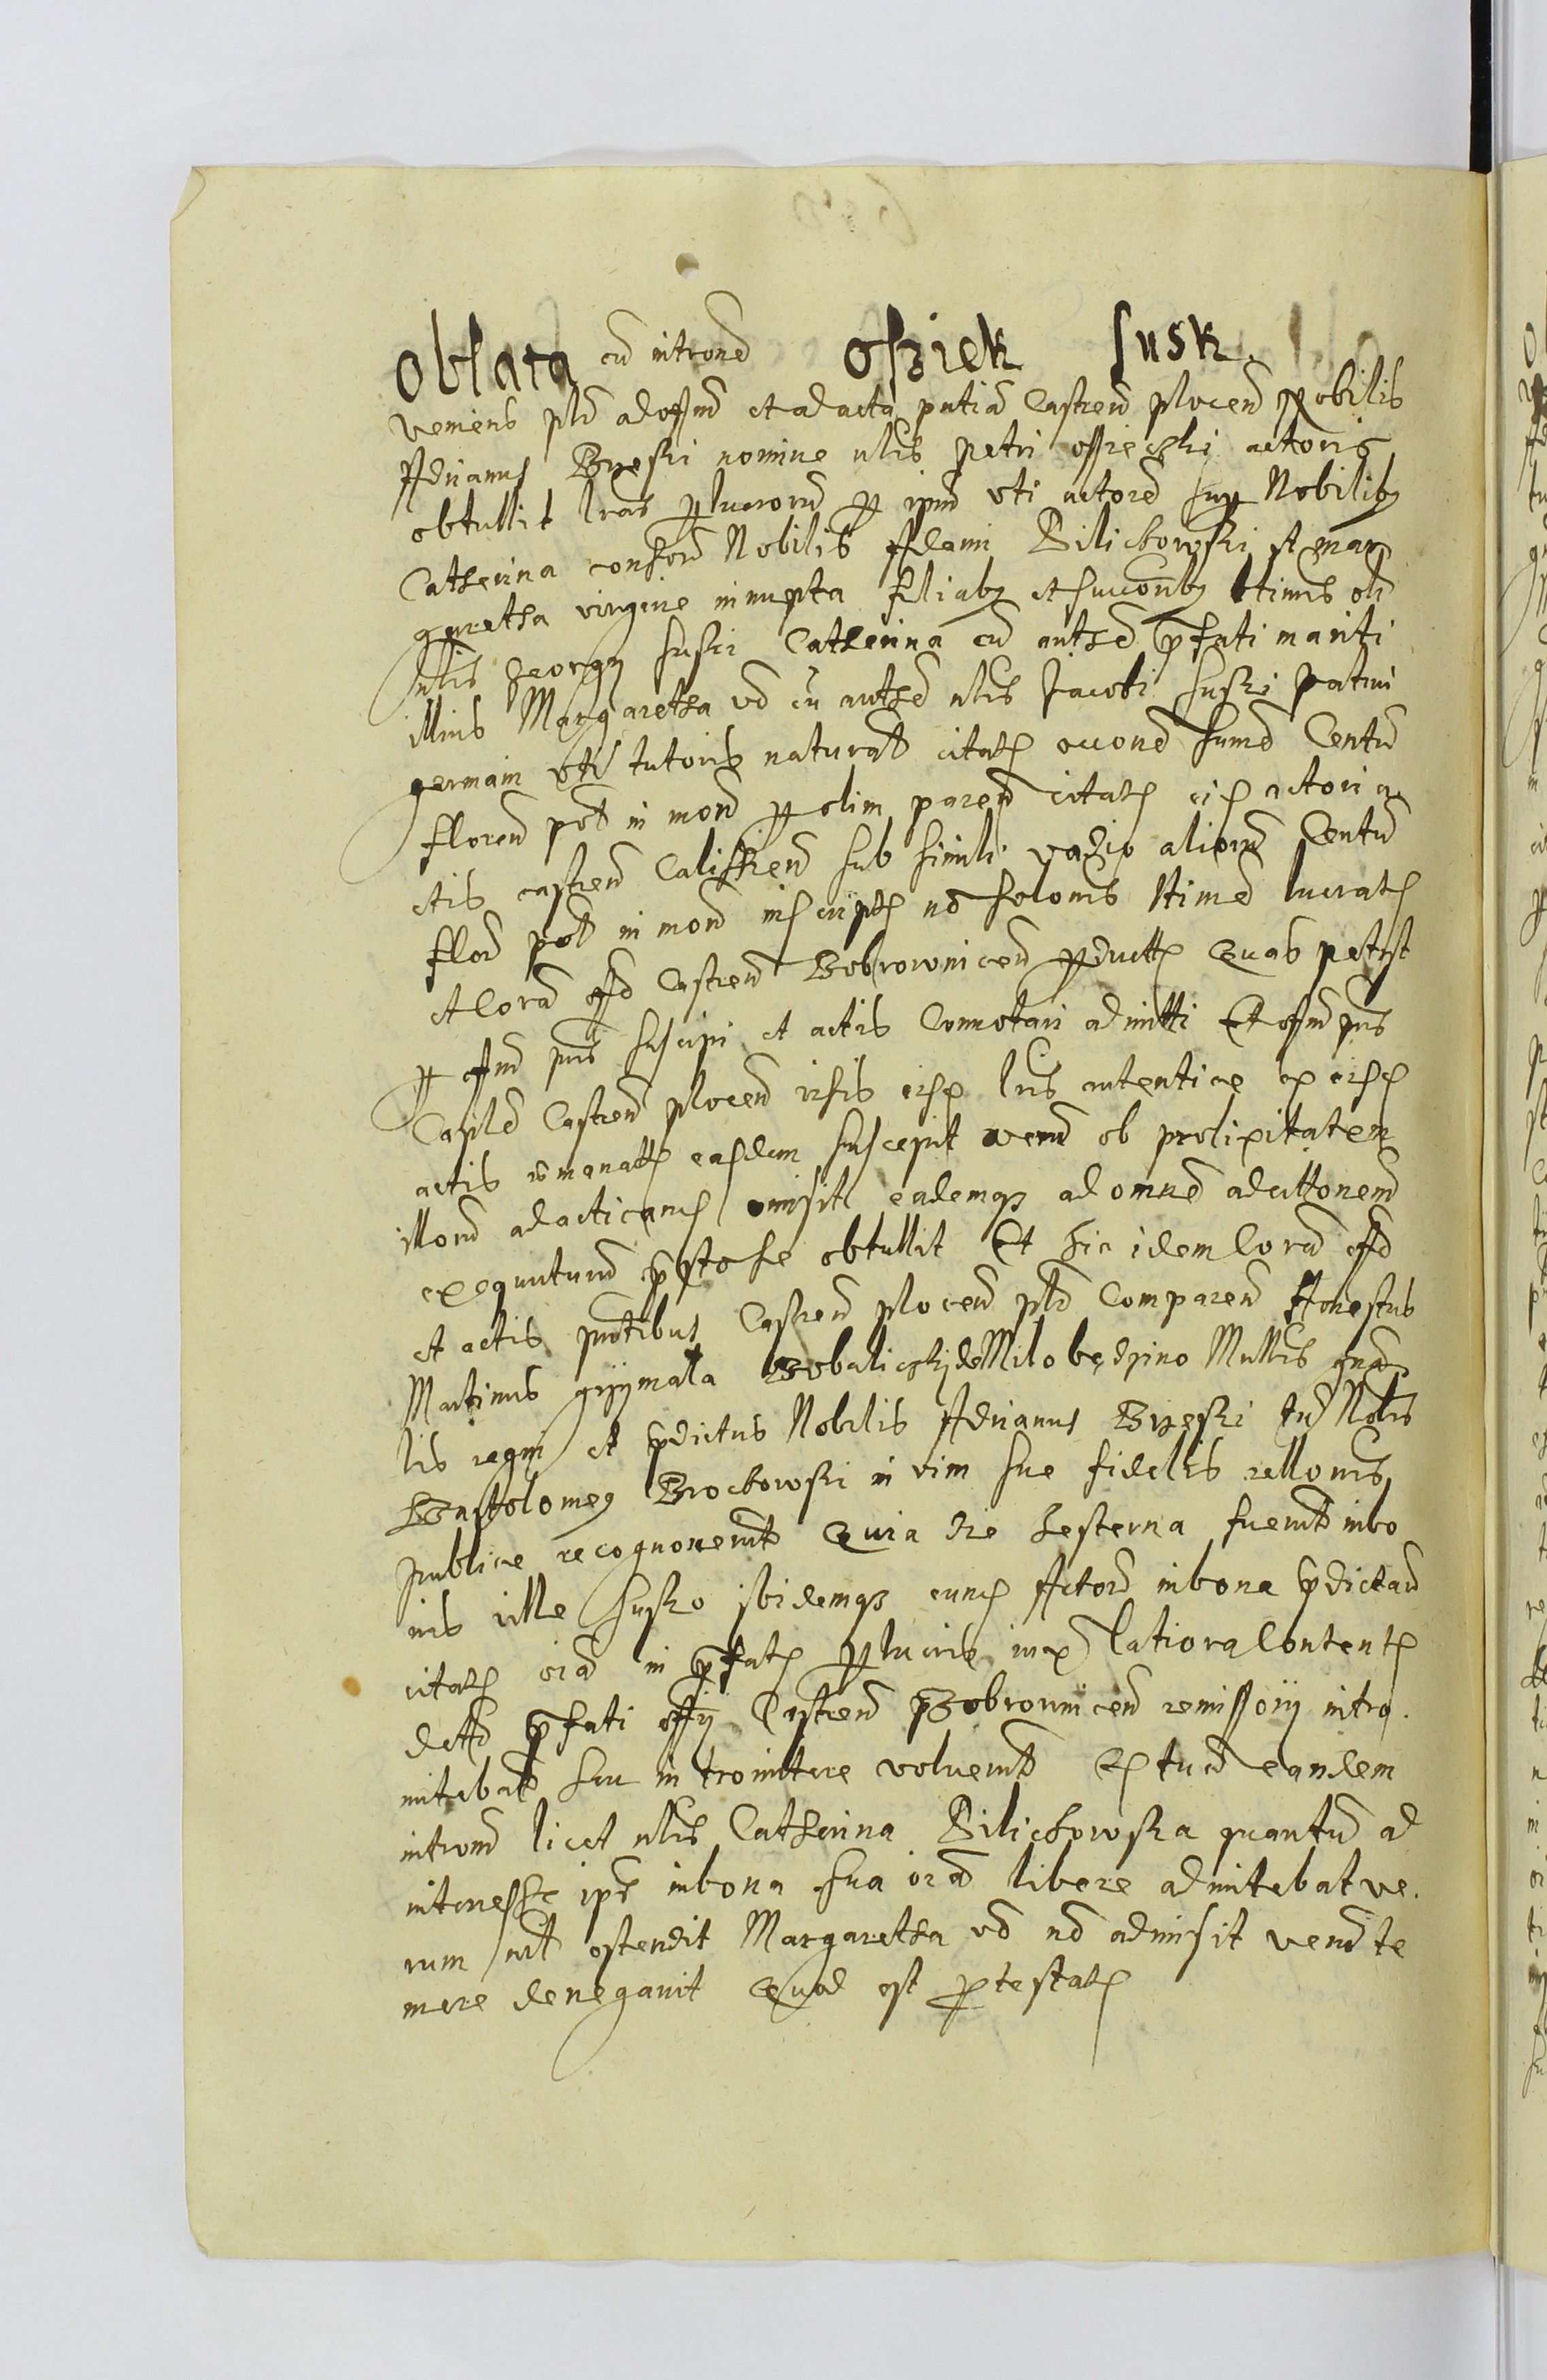 Oblata cu introne osziek susk.
veniens plr ad offm et ad acta pntia Castren plocen Nobilis
Adrianus Brzeski nomine nlis Petri ossiecki actoris
obtullit lras plucrorum p ipm uti actore sup Nobilibz
Catherina consorte Nobilis Adami Bilickowski et mar
garetha virgine innupta filiabz et succoribz ltimis olim
nlis Georgy suski Catherina cu authe pfati mariti
illius Margaretha vo cu authe nlis Jacobi suski patrui
germani uti tutoris natural citatis occone sume Centu
floren pol in mon p olim paren citat eis actori a
ctis castren Calissien sub simili vadio aliorum Centu
flor pol in mon inscript no solonis ltime lucrat
et cora offo Castren Bobrownicen pduct Quas petyt
p offm pns suscipi et actis Connotari admitti Et offm pns
Caple Castren plocen visis eisd lris autentice ex eisd
actis emanatis easdem suscepit veru ob prolixitatem
illoru ad acticanes omisit eademqz ad omne adcittonem
exequuturu psto se obtullit Et hic idem cora offo
et actis pntibus Castren plocen plr Comparen Honestus
Martinus grzymala Bobaliczki de Milobedzino Mnlis gna
lis regni et pdictus Nobilis Adrianus Brzeski tu Nobis
Bartolomeg Brochowski in vim sue fidelis rellonis
publice recognoverut Quia die hesterna fuerut in bo
nis ville susko ibidemqz eunes Actore in bona pdictaru
citat oia in pfatis plucris iux latiora Content
dctto pfati offy Castren Bobrownicen remissory intro.
mitebat seu intromitere voluerut Et tuc eandem
introm licet nlis Catherina Bilickowska quantu ad
interesse ips in bona sua oia libere admitebat ve.
rum nlt ostendit Margaretha vo no admisit veru te
mere denegavit Quod est ptestatus